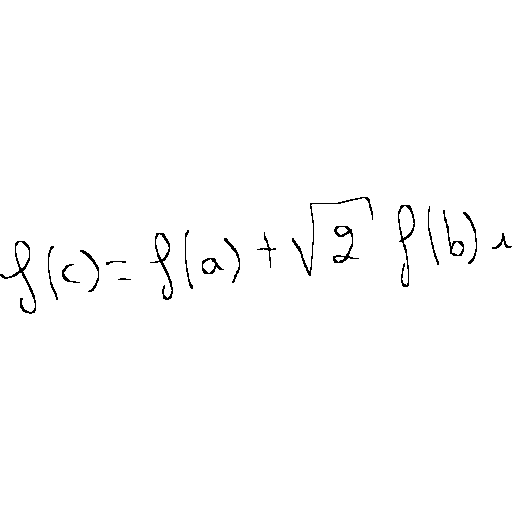 f(c) = f(a) + √2 f(b) i